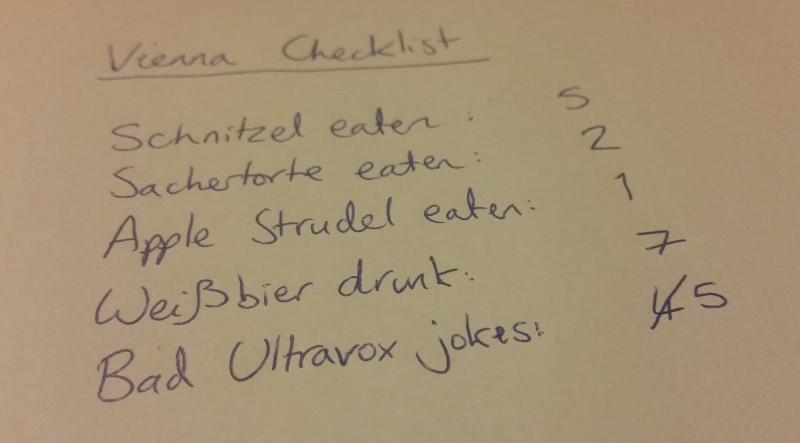 Vienna Checklist
Schnitzel eaten: 5
Sachertorte eaten: 2
Apple Strudel eaten: 1
Weißbier drunk: 7
Bad Ultravox jokes: 4 5